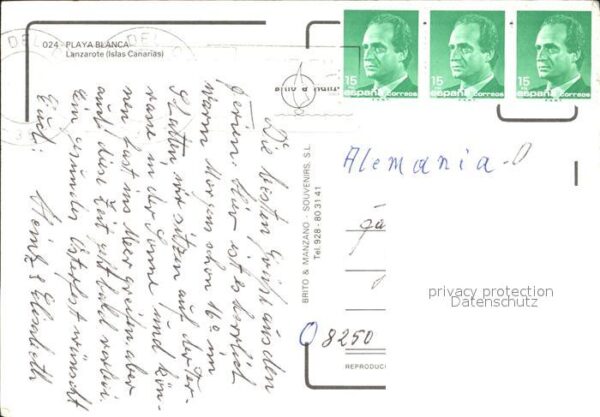 024 - PLAYA BLANCA
Lanzarote (Islas Canarias)
15
españa correos
15
españa correos
15
españa correos
Die besten Grüße aus den
Ferien. Hier ist es herrlich
warm Morgens schon 16° im
Schatten, wir sitzen auf der Ter-
rasse in der Sonne und kön-
nen fast ins Meer greifen aber
auch diese Zeit geht bald vorbei.
Ein gesundes Osterfest wünscht
Euch: Heinz & Elisabeth
BRITO & MANZANO - SOUVENIRS, S.L.
Tel. 928 - 80 31 41
Alemania - D
8250
REPRODUC
privacy protection
Datenschutz